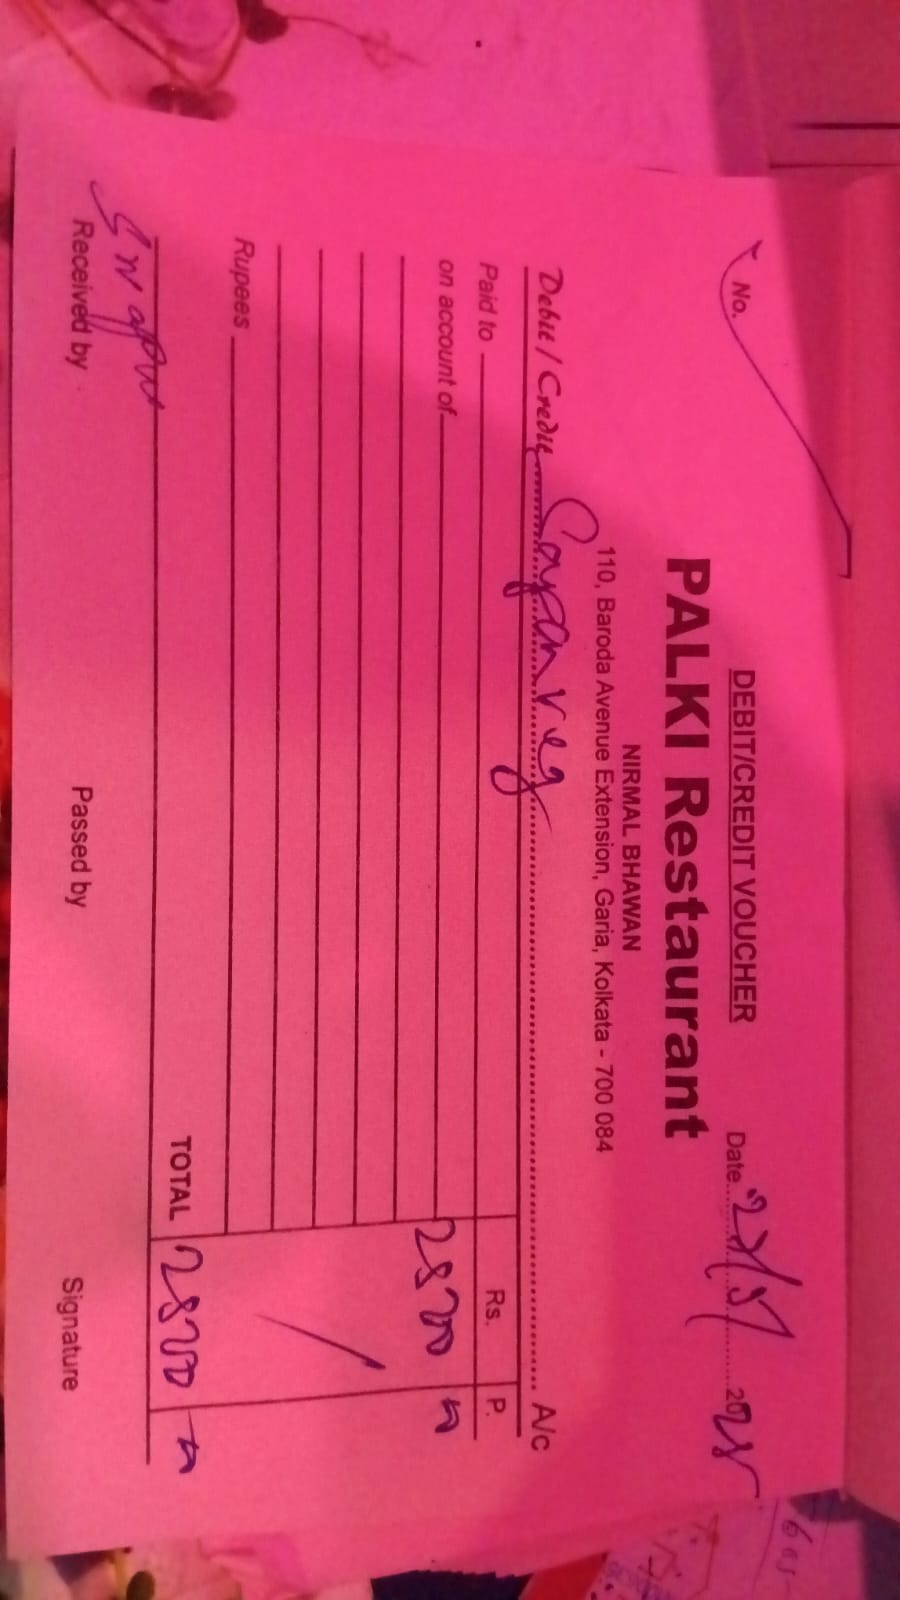 DEBIT/CREDIT VOUCHER
No. Date 2025
PALKI Restaurant
NIRMAL BHAWAN
110, Baroda Avenue Extension, Garia, Kolkata - 700 084
Debit / Credit Sayan veg A/c
Paid to Rs. P.
on account of 2500
Rupees
TOTAL 2500
Received by Passed by Signature